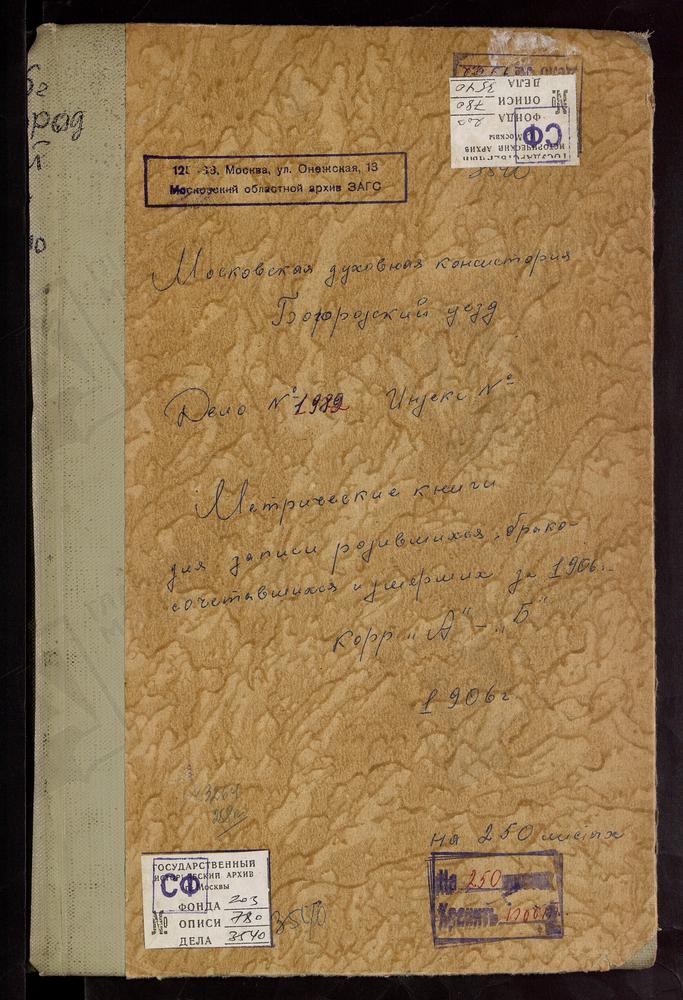 6г
род
й
СФ
№
ДЕЛА 3540
ОПИСИ 780
ФОНДА 203
Москвы
ИСТОРИЧЕСКИЙ АРХИВ
3540
Москва, ул. Онежская, 13
Московский областной архив ЗАГС
Московская духовная консистория
Богородский уезд
Дело № 1982 Индекс №
Метрические книги
для записи родившихся, брако-
сочетавшихся и умерших за 1906г.
корр „А" – „Б"
1906г
на 250 листах
На 250
Хранить
ГОСУДАРСТВЕННЫЙ
ИСТОРИЧЕСКИЙ АРХИВ
СФ Москвы
ФОНДА 203
№ ОПИСИ 780
ДЕЛА 3540
3540